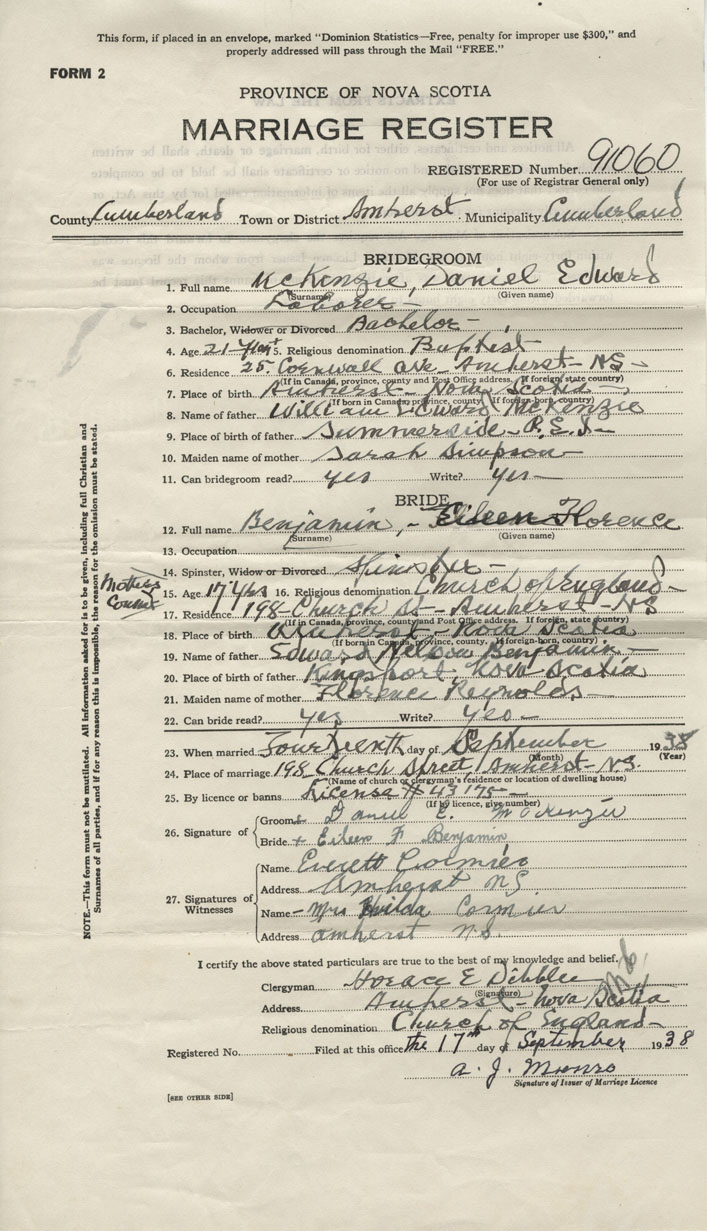 This form, if placed in an envelope, marked "Dominion Statistics—Free, penalty for improper use $300," and
properly addressed will pass through the Mail "FREE."
FORM 2
PROVINCE OF NOVA SCOTIA
MARRIAGE REGISTER
REGISTERED Number 91060
(For use of Registrar General only)
County Cumberland Town or District Amherst Municipality Cumberland
BRIDEGROOM
1. Full name McKenzie, Daniel Edward
(Surname) (Given name)
2. Occupation Laborer
3. Bachelor, Widower or Divorced Bachelor
4. Age 21 Years 5. Religious denomination Baptist
6. Residence 25 Cornwall Ave - Amherst - NS
(If in Canada, province, county and Post Office address. If foreign, state country)
7. Place of birth Amherst - Nova Scotia
(If born in Canada, province, county. If foreign-born, country)
8. Name of father William Edward McKenzie
9. Place of birth of father Summerside - P.E.I.
10. Maiden name of mother Sarah Simpson
11. Can bridegroom read? yes Write? yes
BRIDE
12. Full name Benjamin, - Eileen Florence
(Surname) (Given name)
13. Occupation
14. Spinster, Widow or Divorced Spinster
Mothers Consent
15. Age 17 yrs 16. Religious denomination Church of England
17. Residence 198 - Church St - Amherst - NS
(If in Canada, province, county and Post Office address. If foreign, state country)
18. Place of birth Amherst - Nova Scotia
(If born in Canada, province, county. If foreign-born, country)
19. Name of father Edward Nelson Benjamin
20. Place of birth of father Kingsport, Nova Scotia
21. Maiden name of mother Florence Reynolds
22. Can bride read? yes Write? yes
23. When married Fourteenth day of September 1938
(Month) (Year)
24. Place of marriage 198 Church Street, Amherst - N.S.
(Name of church or clergyman's residence or location of dwelling house)
25. By licence or banns License # 43175
(If by licence, give number)
26. Signature of Groom + Daniel E. McKenzie
Bride + Eileen F. Benjamin
27. Signatures of Witnesses Name Everett Cormier
Address Amherst NS
Name Mrs Hilda Cormier
Address Amherst N.S.
I certify the above stated particulars are true to the best of my knowledge and belief.
Clergyman Horace E Dibblee
(Signature)
Address Amherst - Nova Scotia
Religious denomination Church of England
Registered No. Filed at this office the 17th day of September 1938
A. J. Munro
Signature of Issuer of Marriage Licence
[SEE OTHER SIDE]
NOTE.—This form must not be mutilated. All information asked for is to be given, including full Christian and
Surnames of all parties, and if for any reason this is impossible, the reason for the omission must be stated.